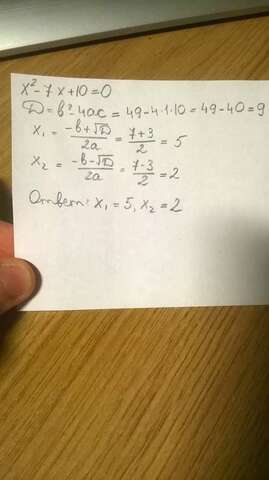 x²-7x+10=0
D=b²-4ac = 49-4·1·10 = 49-40=9
x₁ = (-b+√D)/2a = (7+3)/2 = 5
x₂ = (-b-√D)/2a = (7-3)/2 = 2
Ответ: x₁=5, x₂=2